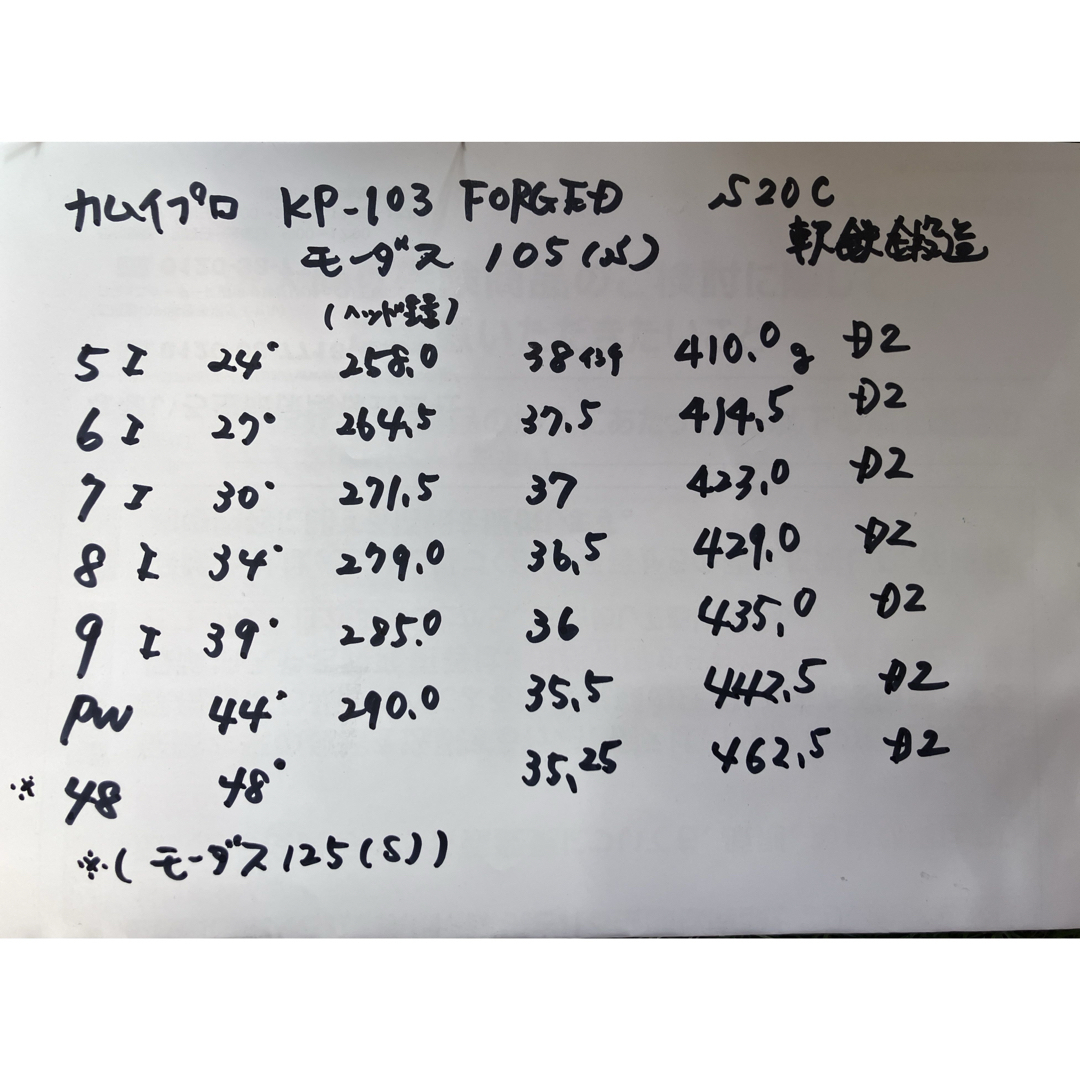 カムイプロ KP-103 FORGED S20C
モーダス 105(S) 軟鉄鍛造
(ヘッド重量)
5I 24° 258.0 38インチ 410.0g D2
6I 27° 264.5 37.5 414.5 D2
7I 30° 271.5 37 423.0 D2
8I 34° 279.0 36.5 429.0 D2
9I 39° 285.0 36 435.0 D2
PW 44° 290.0 35.5 442.5 D2
※48 48° 35.25 462.5 D2
※(モーダス125(S))